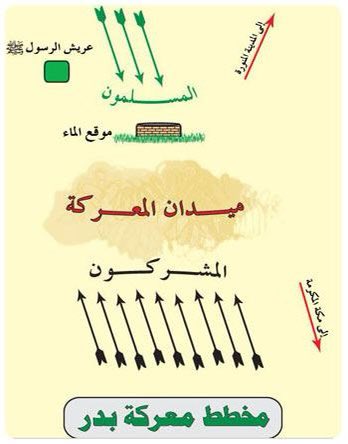 إلى المدينة المنورة
عريش الرسول ﷺ
المسلمون
موقع الماء
ميدان المعركة
المشركون
إلى مكة المكرمة
مخطط معركة بدر